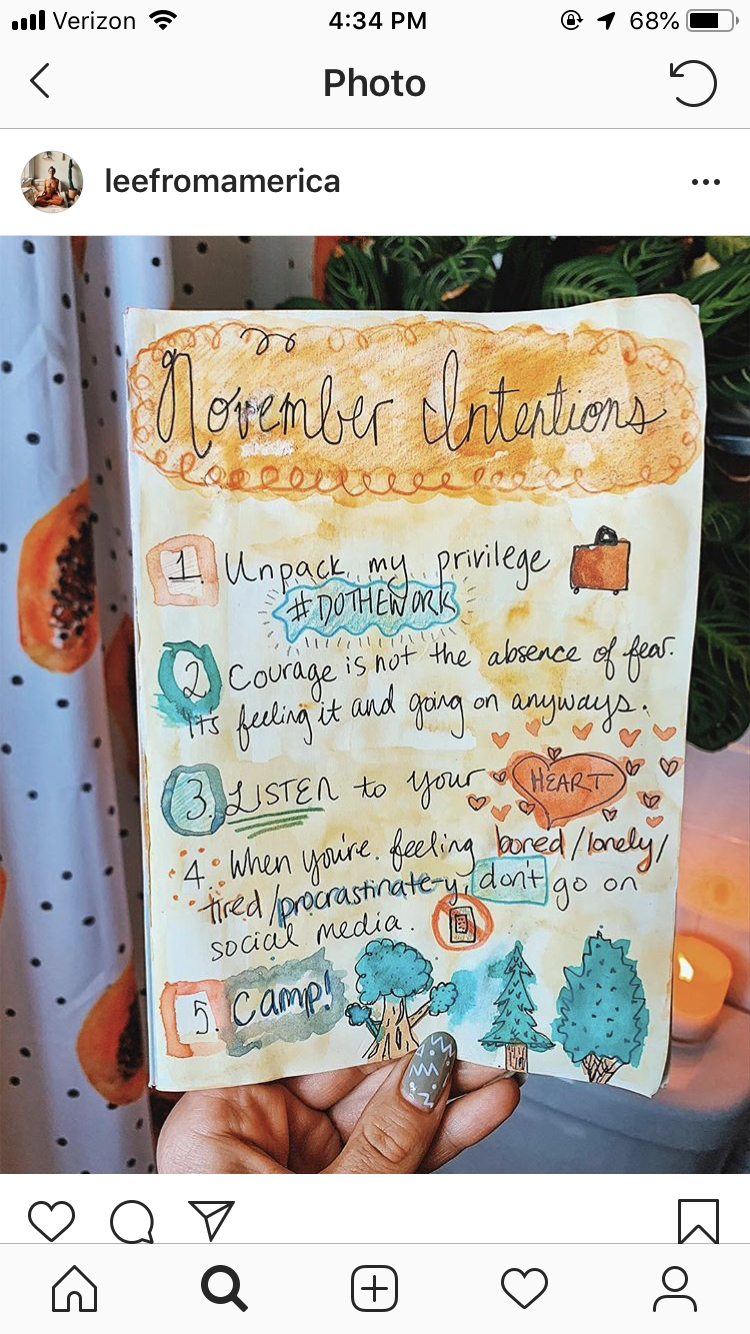 Verizon 4:34 PM 68%
Photo
leefromamerica
November Intentions
1. Unpack my privilege
#DOTHEWORK
2. Courage is not the absence of fear.
Its feeling it and going on anyways.
3. LISTEN to your HEART
4. When you're feeling bored/lonely/
tired/procrastinate-y, don't go on
social media.
5. Camp!